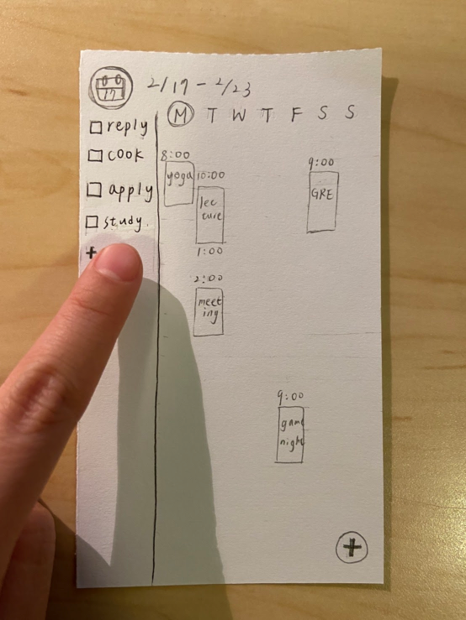 17
2/17 - 2/23
M T W T F S S
reply
cook
apply
study.
+
8:00
yoga
10:00
lec
ture
1:00
2:00
meet
ing
9:00
GRE
9:00
game
night
+